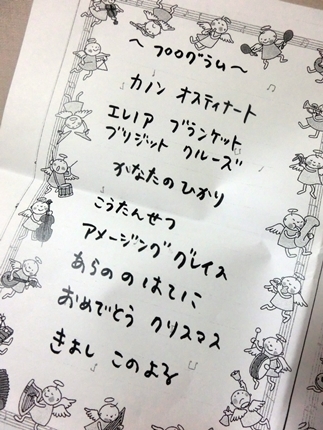 ～プログラム～
カノン オスティナート
エレノア プランケット
ブリジット クルーズ
かなたのひかり
こうたんせつ
アメージング グレイス
あらののはてに
おめでとう クリスマス
きよし このよる